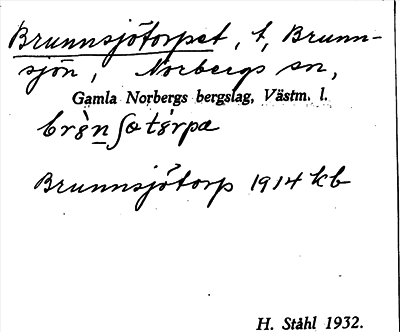 Brunnsjötorpet, t, Brunn-
sjön, Norbergs sn,
Gamla Norbergs bergslag, Västm. l.
Brunnsjötorp 1914 kb
H. Ståhl 1932.